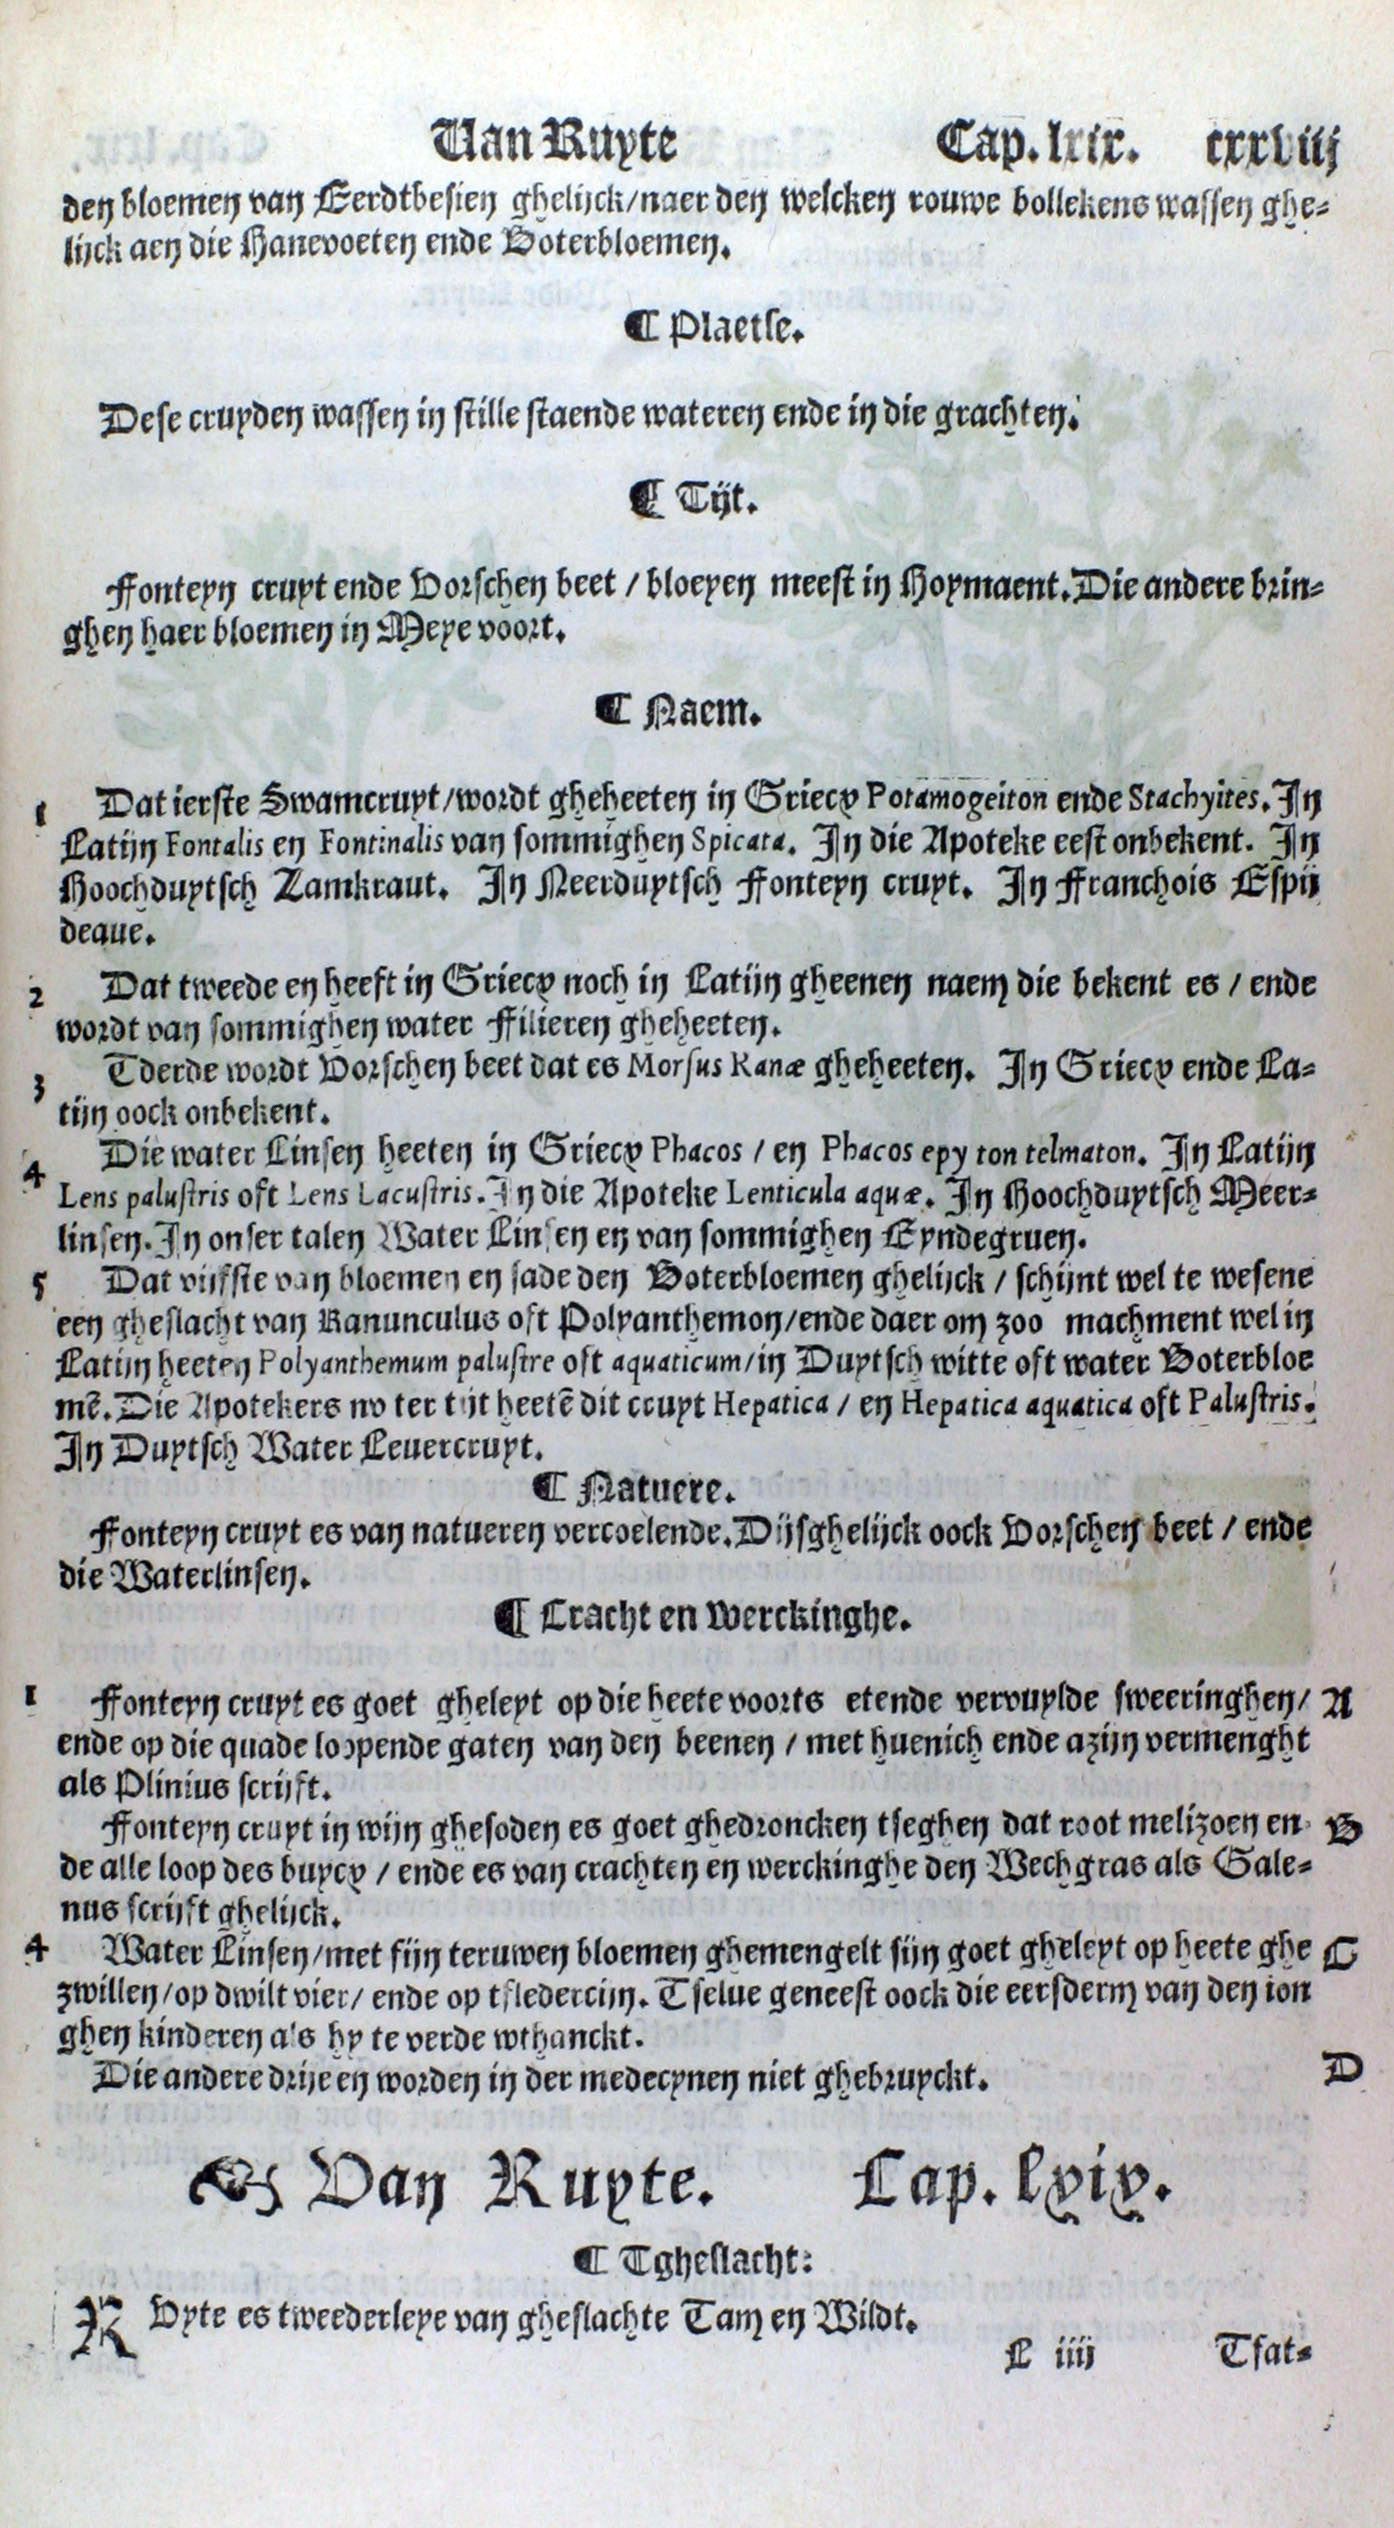 Van Ruyte Cap. lxix. cxxviij
den bloemen van Eerdtbesien ghelijck/naer den welcken rouwe bollekens wassen ghe-
lijck aen die Hanevoeten ende Boterbloemen.
¶ Plaetse.
Dese cruyden wassen in stille staende wateren ende in die grachten.
¶ Tijt.
Fonteyn cruyt ende Vorschen beet / bloeyen meest in Hoymaent. Die andere brin-
ghen haer bloemen in Meye voort.
¶ Naem.
1 Dat ierste Swamcruyt/wordt gheheeten in Griecx Potamogeiton ende Stachyites. In
Latijn Fontalis en Fontinalis van sommighen Spicata. In die Apoteke eest onbekent. In
Hoochduytsch Zamkraut. In Neerduytsch Fonteyn cruyt. In Franchois Espij
deaue.
2 Dat tweede en heeft in Griecx noch in Latijn gheenen naem die bekent es / ende
wordt van sommighen water Filieren gheheeten.
3 Tderde wordt Vorschen beet dat es Morsus Ranæ gheheeten. In Griecx ende La-
tijn oock onbekent.
4 Die water Linsen heeten in Griecx Phacos / en Phacos epy ton telmaton. In Latijn
Lens palustris oft Lens Lacustris. In die Apoteke Lenticula aquæ. In Hoochduytsch Meer-
linsen. In onser talen Water Linsen en van sommighen Eyndegruen.
5 Dat vijfste van bloemen en sade den Boterbloemen ghelijck / schijnt wel te wesene
een gheslacht van Ranunculus oft Polyanthemon/ende daer om zoo machment wel in
Latijn heeten Polyanthemum palustre oft aquaticum/in Duytsch witte oft water Boterbloe
mē. Die Apotekers nv ter tijt heetē dit cruyt Hepatica / en Hepatica aquatica oft Palustris.
In Duytsch Water Leuercruyt.
¶ Natuere.
Fonteyn cruyt es van natueren vercoelende. Dijsghelijck oock Vorschen beet / ende
die Waterlinsen.
¶ Cracht en Werckinghe.
1 Fonteyn cruyt es goet gheleyt op die heete voorts etende vervuylde sweeringhen/ A
ende op die quade loopende gaten van den beenen / met huenich ende azijn vermenght
als Plinius scrijft.
Fonteyn cruyt in wijn ghesoden es goet ghedroncken tseghen dat root melizoen en- B
de alle loop des buycx / ende es van crachten en werckinghe den Wechgras als Gale-
nus scrijft ghelijck.
4 Water Linsen/met fijn teruwen bloemen ghemengelt sijn goet gheleyt op heete ghe C
zwillen/op dwilt vier/ ende op tfledercijn. Tselue geneest oock die eersderm van den ion
ghen kinderen als hy te verde wthanckt.
Die andere drije en worden in der medecynen niet ghebruyckt. D
Van Ruyte. Cap. lxix.
¶ Tgheslacht:
RVyte es tweederleye van gheslachte Tam en Wildt.
L iiij Tsat-